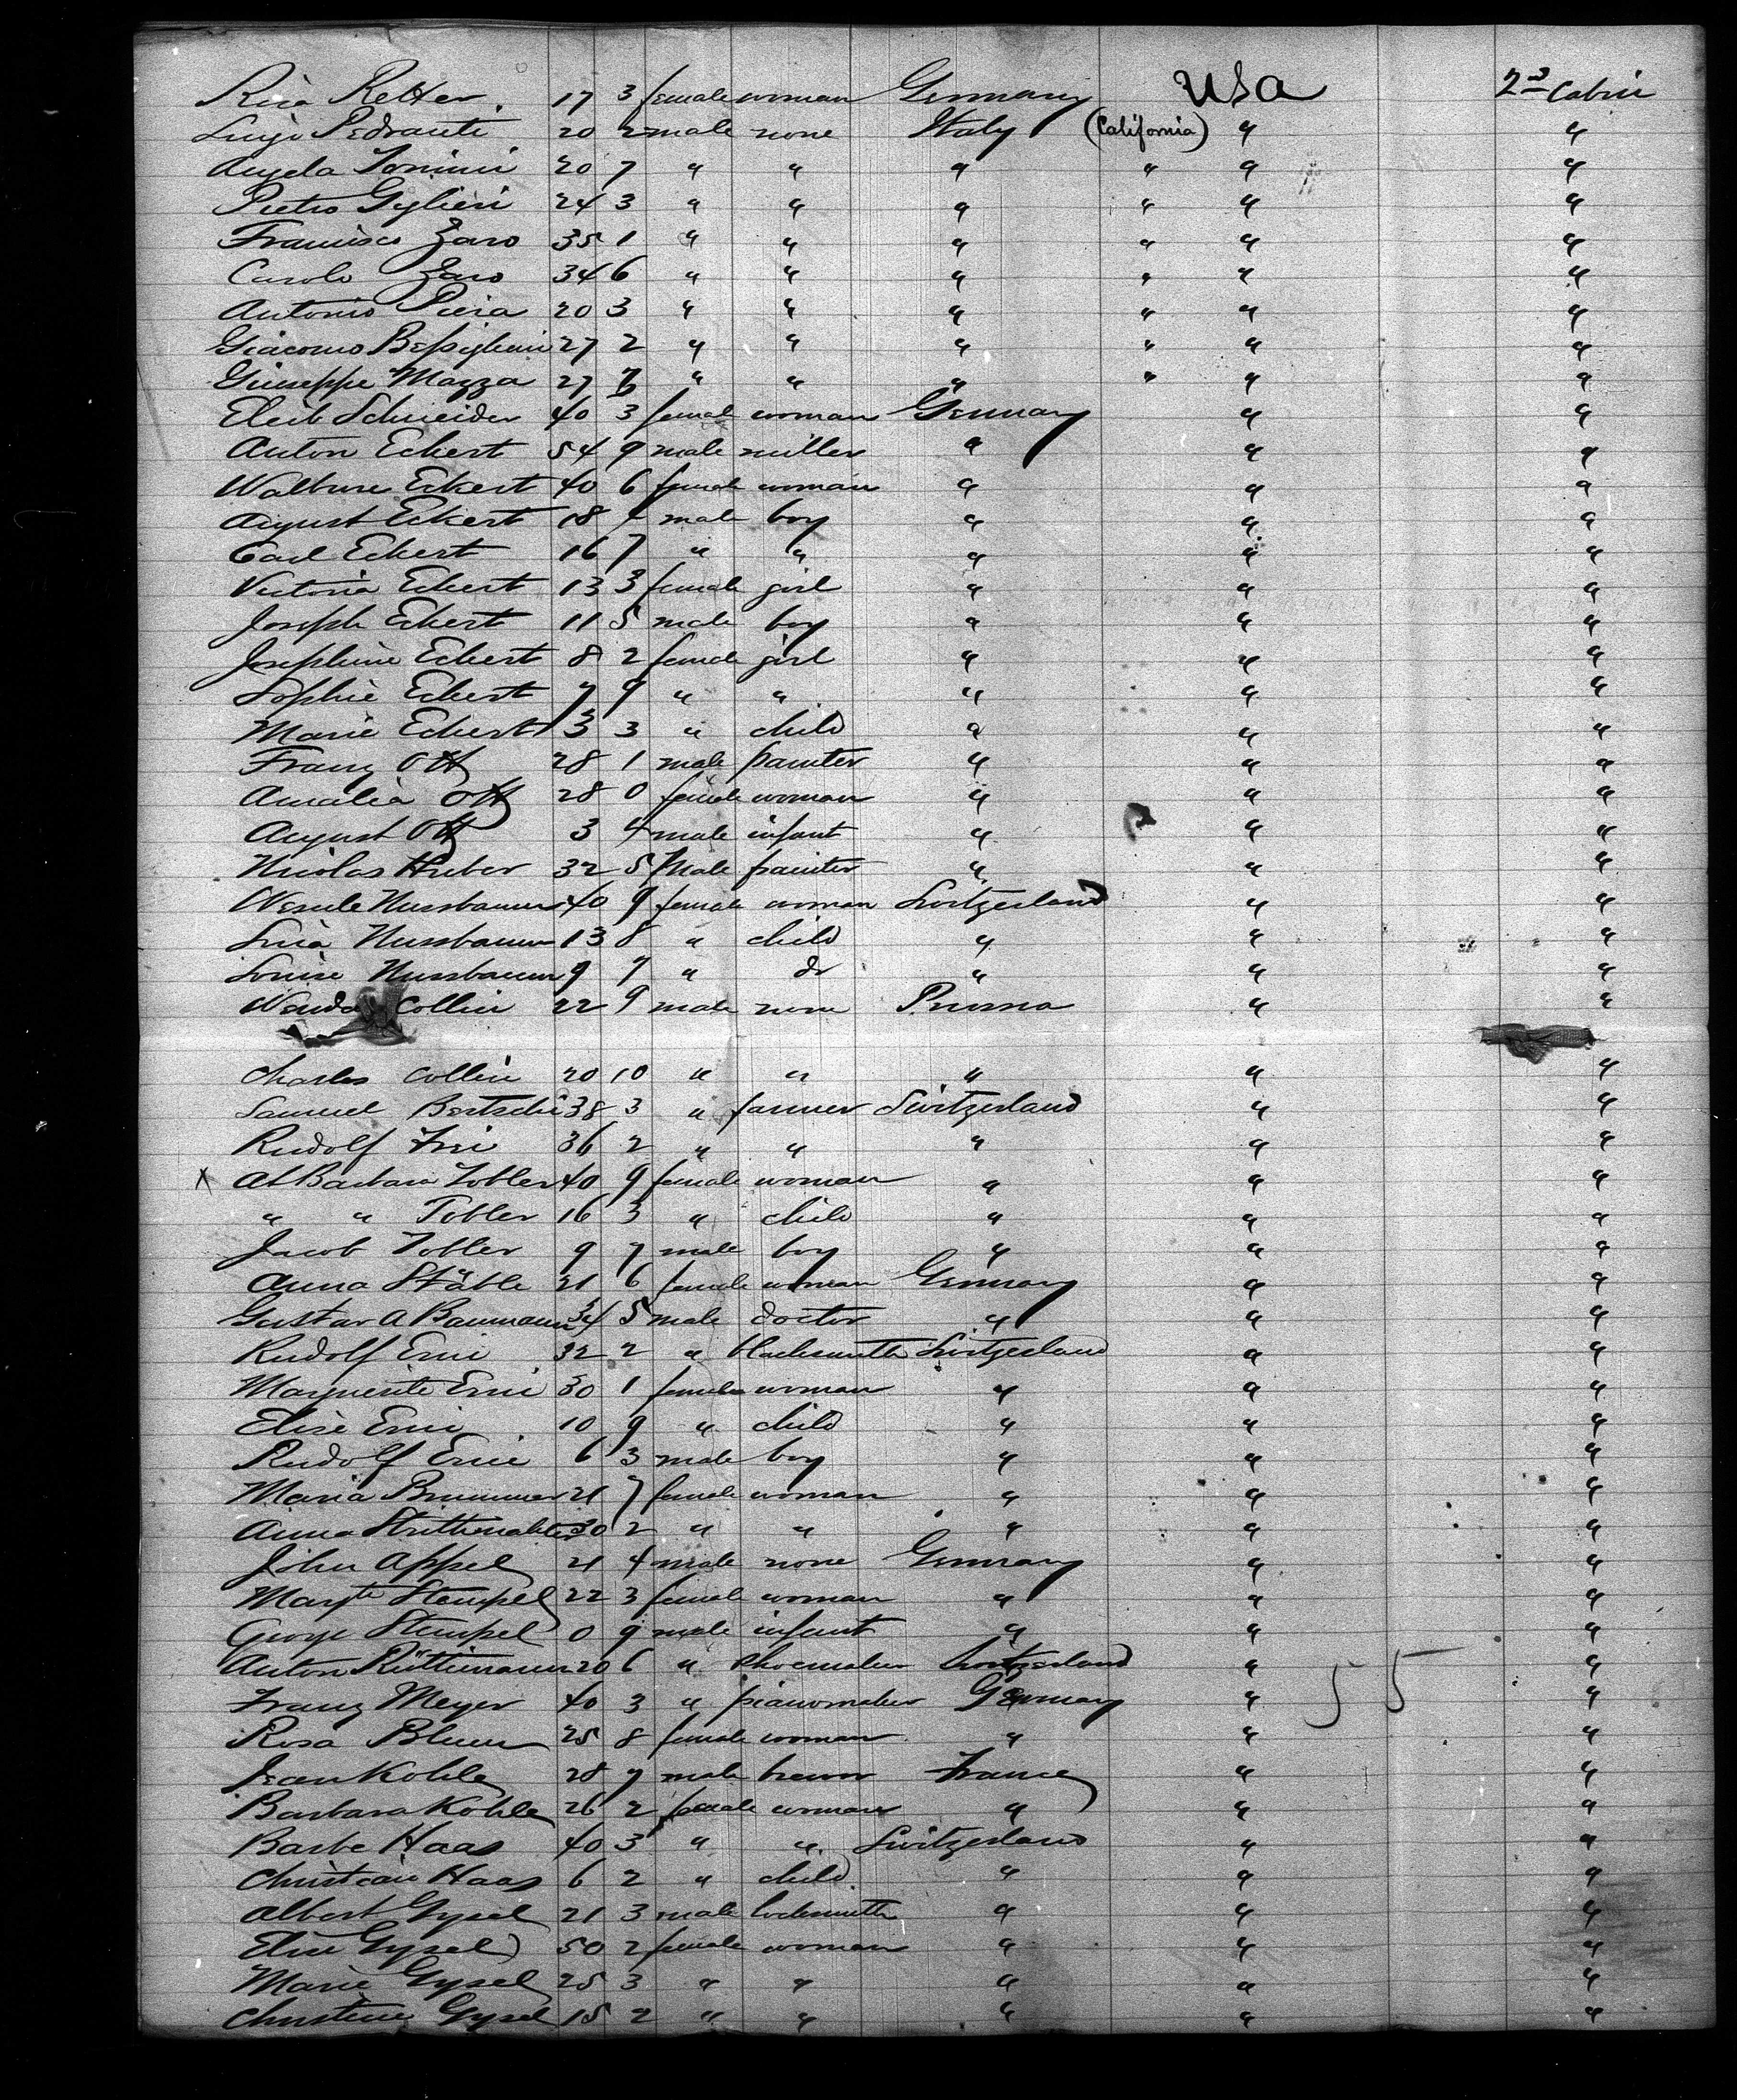 Rica Retter. 17 3 female woman Germany USA 2nd Cabin
Luigi Pedranti 20 2 male none Italy (California) " "
Angela Tonini 20 7 " " " " " "
Pietro Gylieri 24 3 " " " " " "
Francisco Zaro 35 1 " " " " " "
Carolo Zaro 34 6 " " " " " "
Antonio Piera 20 3 " " " " " "
Giacomo 27 2 " " " " " "
Giuseppe Mazza 27 " " " " " "
Schneider 40 3 female woman Germany " "
Anton Eckert 54 9 male miller " " "
Walbure Eckert 40 6 female woman " " "
August Eckert 18 4 male boy " " "
Carl Eckert 16 7 " " " " "
Victoria Eckert 13 3 female girl " " "
Joseph Eckert 11 5 male boy " " "
Josephine Eckert 8 2 female girl " " "
Sophie Eckert 7 9 " " " " "
Marie Eckert 3 3 " child " " "
Franz Ott 28 1 male painter " " "
Amalia Ott 28 0 female woman " " "
August Ott 3 4 male infant " " "
Nicolas Huber 32 5 Male painter " " "
Nussbaum 40 9 female woman Switzerland " "
Lina Nussbaum 13 8 " child " " "
Louise Nussbaum 9 7 " do " " "
Collin 22 9 male none Prussia " "
Charles Collin 20 10 " " " " "
Samuel Bertschi 38 3 " farmer Switzerland " "
Rudolf Frei 36 2 " " " " "
X A Barbara Tobler 40 9 female woman " " "
" " Tobler 16 3 " child " " "
Jacob Tobler 9 7 male boy " " "
Anna Stäble 21 6 female woman Germany " "
Gustav A Baumann 34 5 male doctor " " "
Rudolf Erni 32 2 " blacksmith Switzerland " "
Marguerite Erni 30 1 female woman " " "
Elise Erni 10 9 " child " " "
Rudolf Erni 6 3 male boy " " "
Maria Brunner 21 7 female woman " " "
Anna 30 2 " " " " "
John Appel 21 4 male none Germany " "
Margte Stempel 22 3 female woman " " "
George Stempel 0 9 male infant " " "
Anton Rüttimann 20 6 " shoemaker Switzerland " "
Franz Meyer 40 3 " pianomaker Germany " 55 "
Rosa Blum 25 8 female woman " " "
Jean Kohle 28 7 male brewer France " "
Barbara Kohle 26 2 female woman " " "
Barbe Haas 40 3 " " Switzerland " "
Christian Haas 6 2 " child " " "
Albert Gysel 21 3 male locksmith " " "
Elise Gysel 50 2 female woman " " "
Marie Gysel 25 3 " " " " "
Christine Gysel 15 2 " " " " "